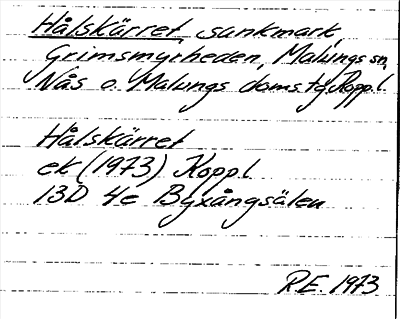 Hålskärret, sankmark,
Grimsmyrheden, Malungs sn,
Nås o. Malungs doms.tg Koppl.
Hålskärret
ek (1973) Koppl
13D 4e Byxångsälen
R.E. 1973